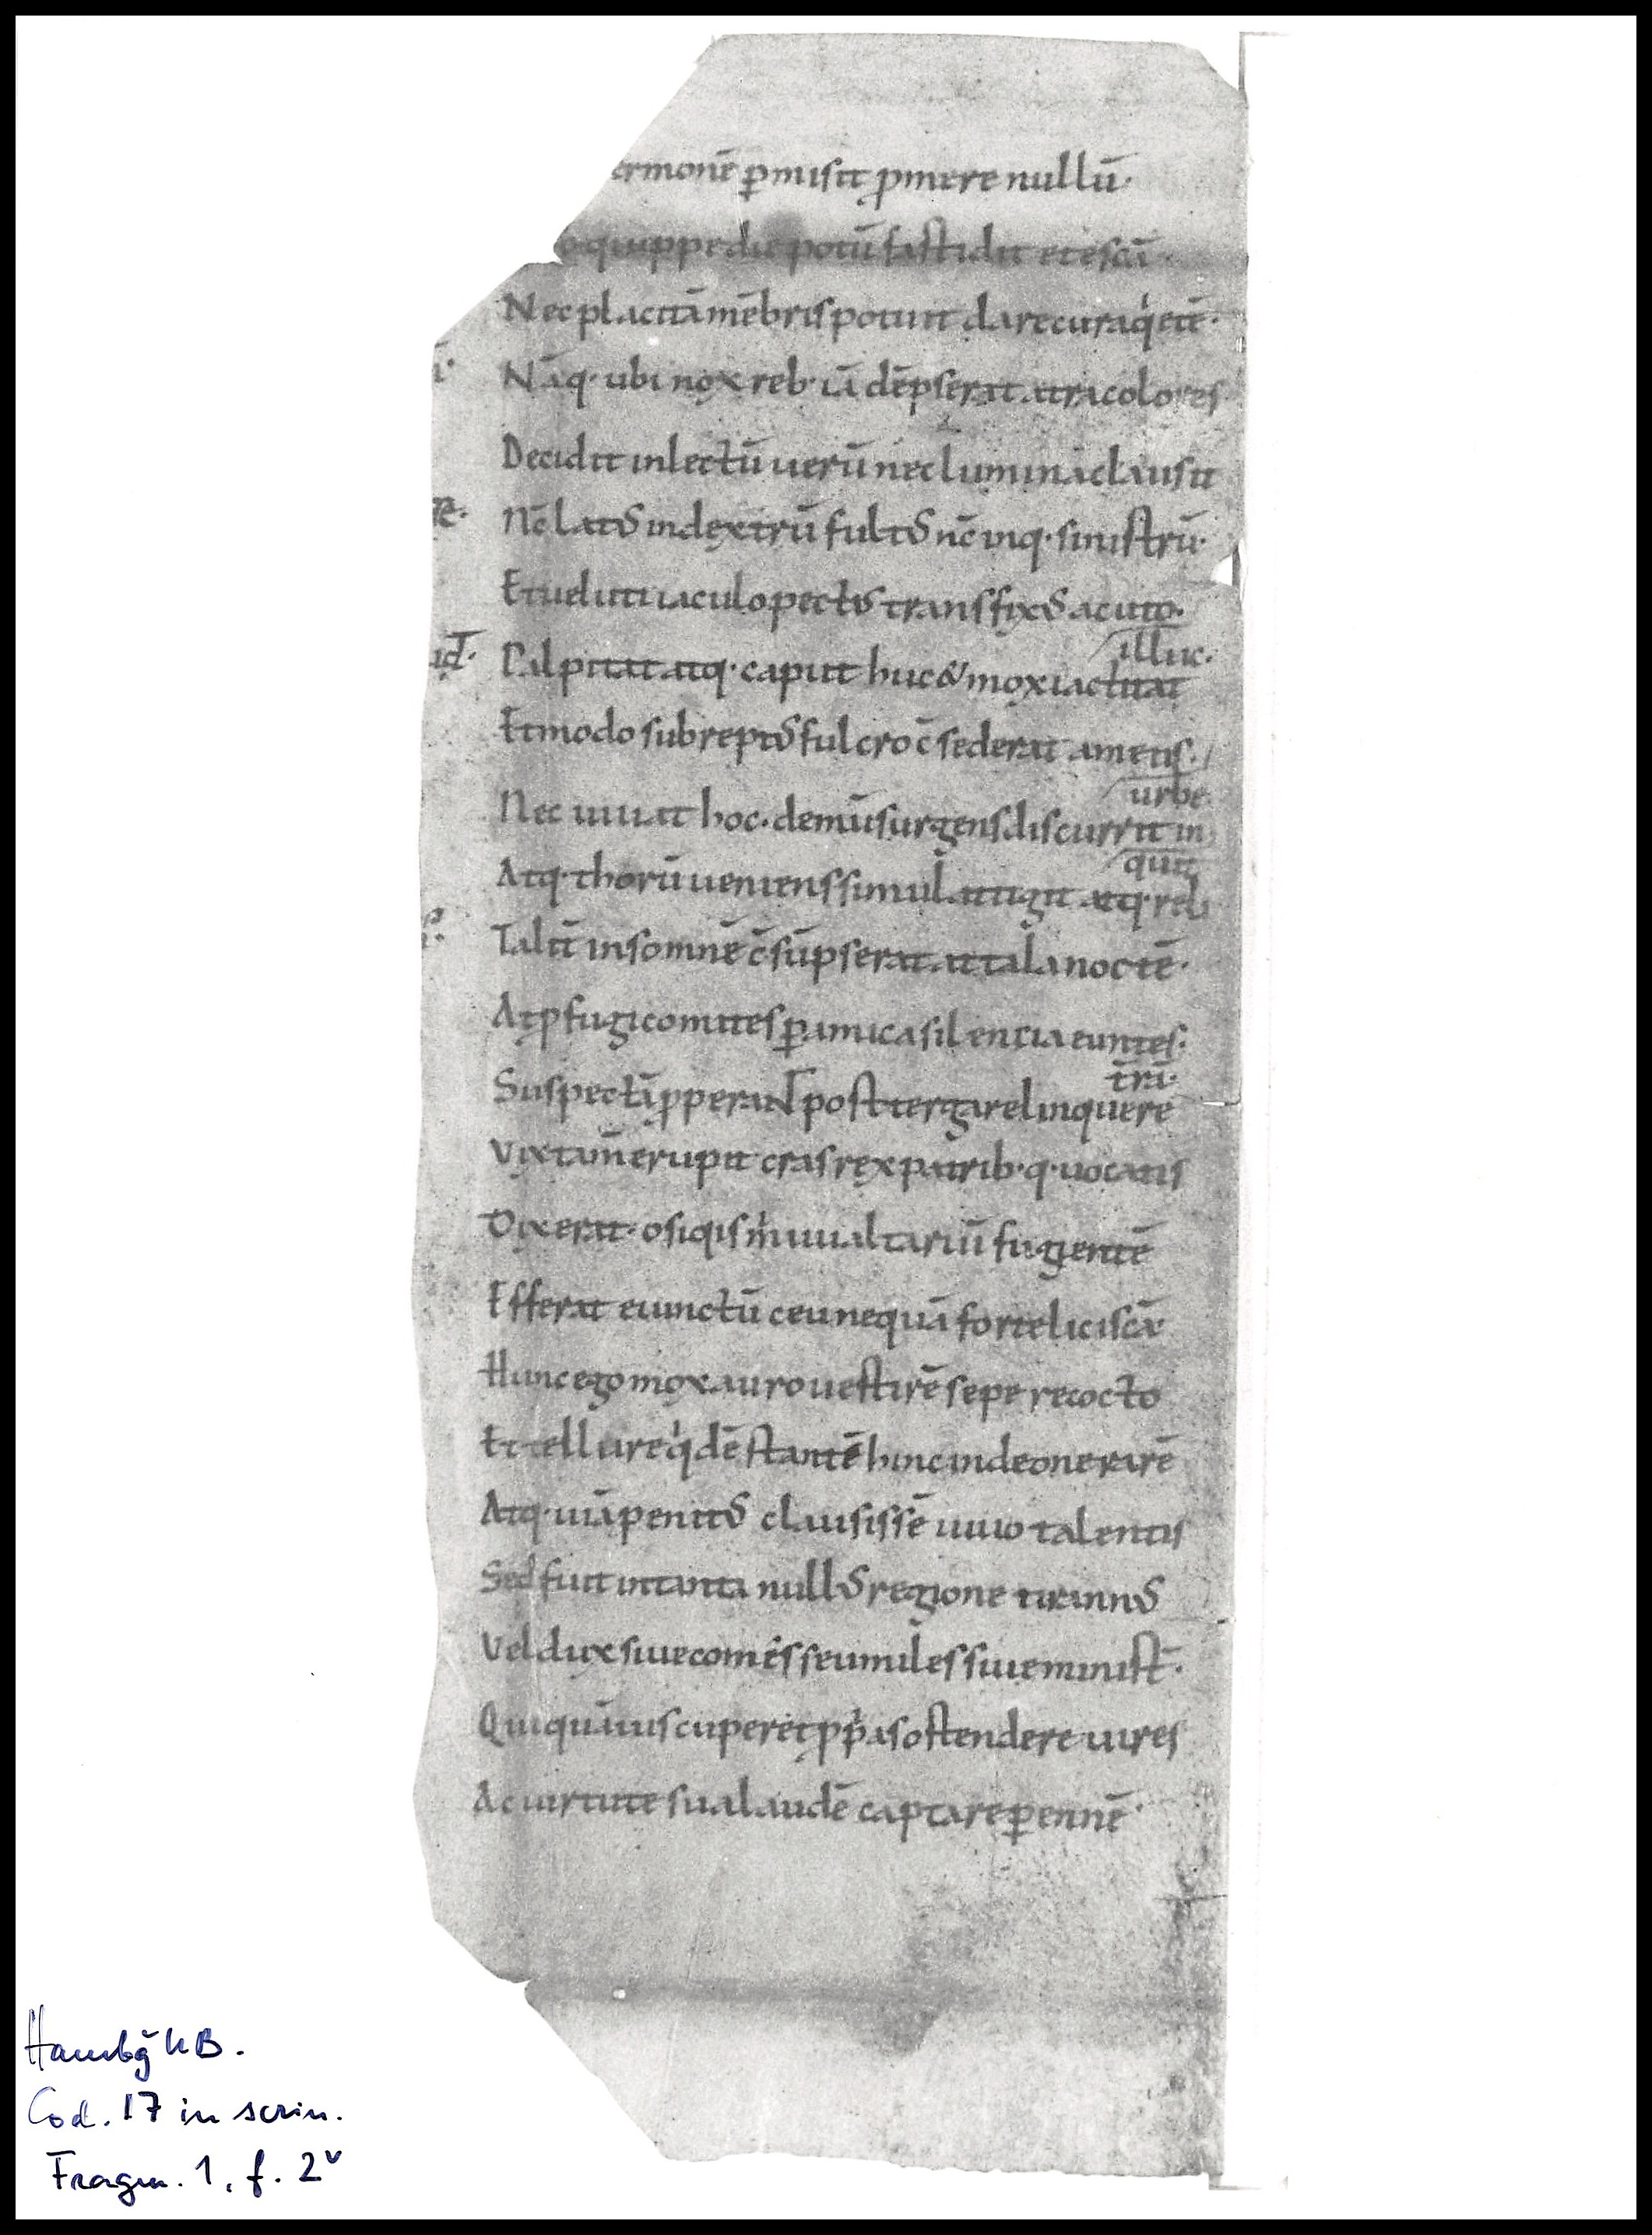 ermonē ꝑmisit ꝓmere nullū·
quippe die potū fastidit et escā·
Nec placitā mēbris potuit dare cura q̍etē·
ı̄· Nāq· ubi nox reb· iā dēpserat atra colores
Decidit in lectū uerū nec lumina clausit
Nc̄ latꝰ in dextrū fultꝰ nc̄ inq· sinistrū·
Et ueluti iaculo pectꝰ transfixꝰ acuto·
illuc·
Palpitat atq· caput huc & mox iactitat
Et modo subreptꝰ fulcro c̄sederat amens·
urbe
Nec iuuat hoc· demū surgens discurrit in
quit
Atq· thorū ueniens simul attigit atq· reli
Talit̄ insomnē c̄sūpserat attila noctē·
At ꝓfugi comites ꝑ amica silentia euntes·
t̄rā·
Suspectā ꝓperant post terga relinquere
Vix tam̄ erupit cras rex patrib· q· uocatis
Dixerat· o si q̍s m̍ uualtariū fugientē
Efferat euinctū ceu nequā forte liciscā·
Hunc ego mox auro uestirē sepe recocto
Et tellure q̍dē stantē hinc inde onerarē
Atq· uiā penitꝰ clausissē uiuo talentis
Sed fuit in tanta nullꝰ regione tirannꝰ
Vel dux siue comes seu miles siue minist̄·
Qui quāuis cuperet ꝓp̍as ostendere uires
Ac uirtute sua laudē captare ꝑennē·
Hambg UB.
Cod. 17 in scrin.
Fragm. 1, f. 2ᵛ